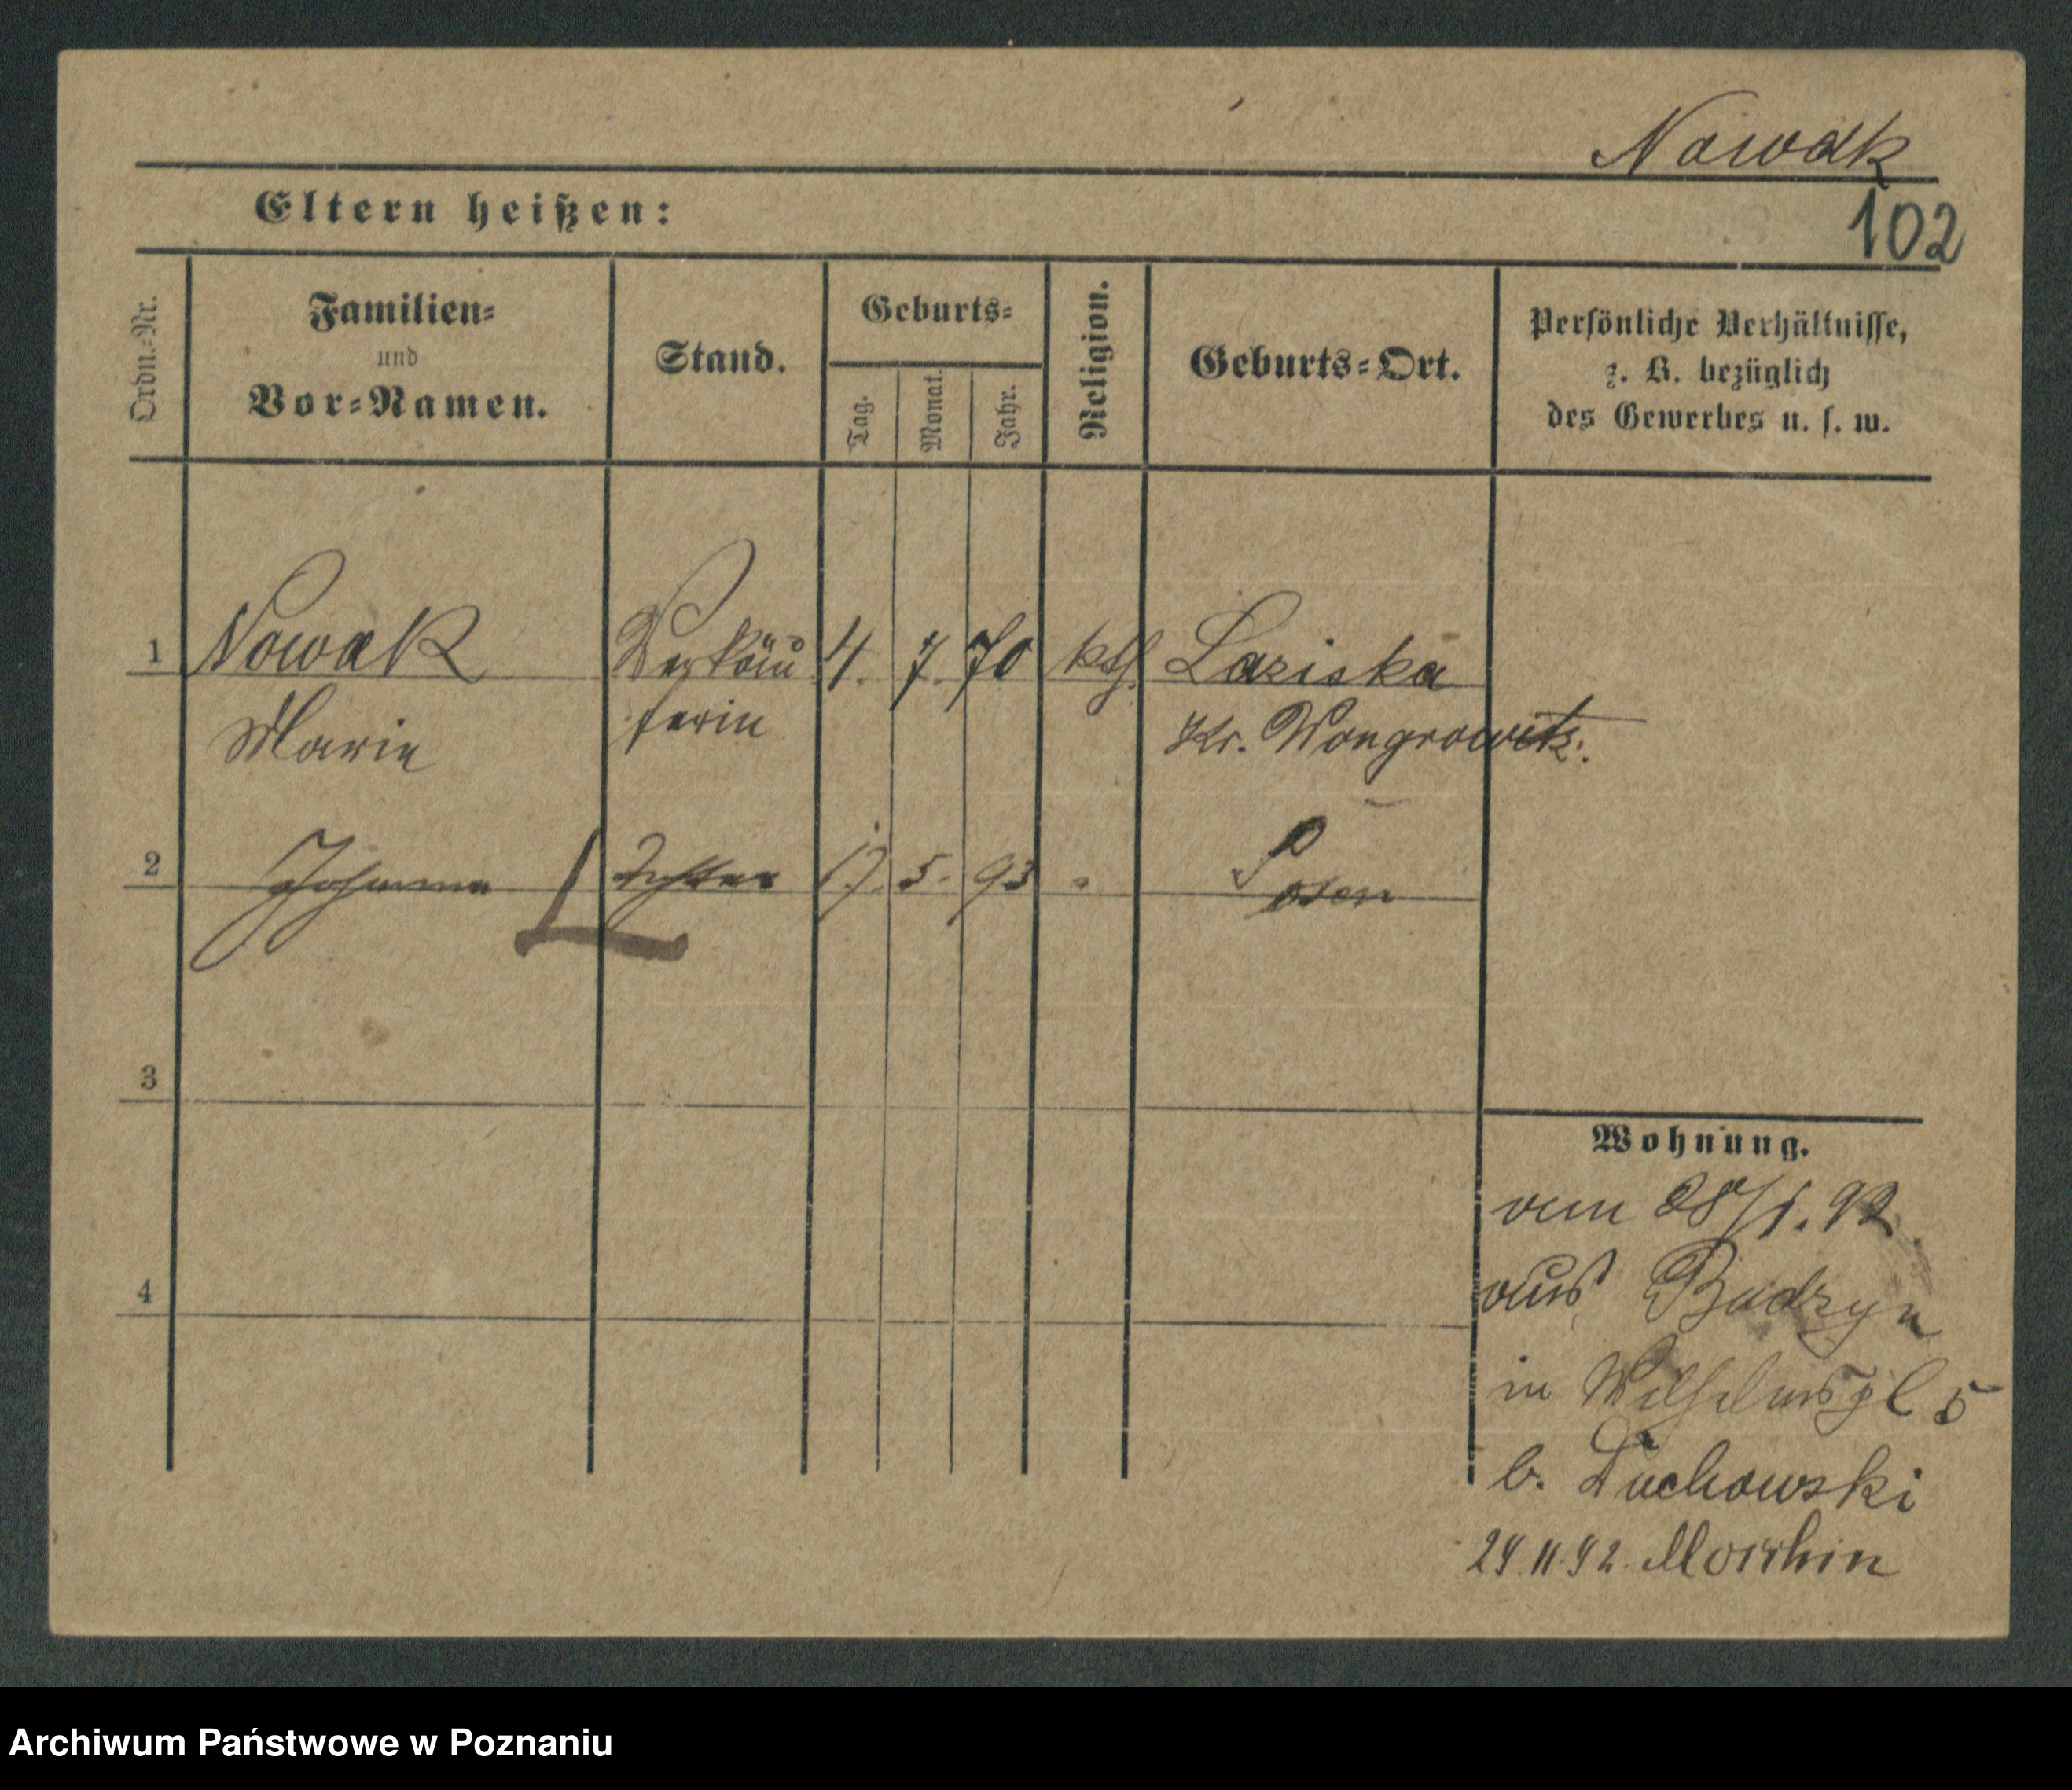 Nowak
Eltern heißen:
102
Ordn.-Nr.
Familien-
und
Vor-Namen.
Stand.
Geburts-
Tag.
Monat.
Jahr.
Religion.
Geburts-Ort.
Persönliche Verhältnisse,
z. B. bezüglich
des Gewerbes u. s. w.
1 Nowak Verkäu 4. 7. 70 kth. Laziska
Marie ferin Kr. Wongrowitz.
2 Johanna Tochter 17. 5. 93 " Posen
3
4
Wohnung.
vom 28/1. 92
aus Budzyn
in Wilhelmspl 5
b. Duchowski
24.11.92.
Archiwum Państwowe w Poznaniu